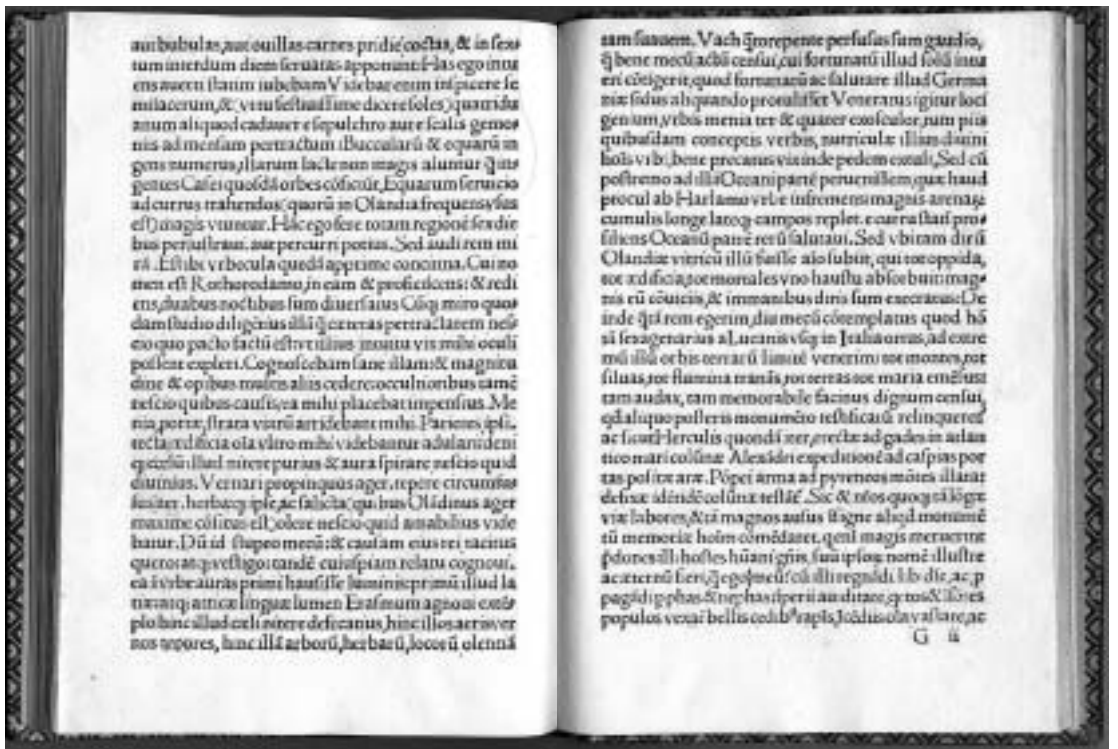 aut bubulas, aut ouillas carnes pridie coctas, & in sex⸗
tum interdum diem seruatas apponunt: Has ego intu
ens auem statim iubebam Videbar enim inspicere se
milacerum, & (ut tu dicere soles) quatridu
anum aliquod cadauer e sepulchro aut e scalis gemo⸗
niis ad mensam pertractum Buccularū & equarū in
gens numerus, illarum lacte non magis aluntur q̄ in⸗
gentes Casei quosdā orbes cōficiūt, Equarum seruicio
ad currus trahendos (quorū in Olandia frequens vsus
est) magis vtuntur. Hāc ego fere totam regionē sex die
bus perlustraui, aut percurri potius. Sed audi rem mi
rā. Est ibi vrbecula quedā apprime concinna. Cui no
men est Rothorodamo, in eam & proficiscens: & redi
ens, duabus noctibus sum diuersatus Cūq; miro quo⸗
dam studio diligētius illā q̄ ceteras pertractarem nes⸗
cio quo pacto factū est vt illius intuitu vix mihi oculi
possent expleri. Cognoscebam sane illam: & magnitu
dine & opibus multis aliis cedere: occultioribus tamē
nescio quibus causis, ea mihi placebat impensius. Me
nia, portæ, strata viarū arridebant mihi. Parietes ipsi,
tecta, ædificia oīa vltro mihi videbantur adulari: deni
q; cœlū illud nitere purius & aura spirare nescio quid
diuinius. Vernari propinquus ager, repere circumfusi
suauiter, herbæq; ipsæ, ac salicta (quibus Olādinus ager
maxime cōsitus est) olere nescio quid amabilius vide
bantur. Dū id stupeo mecū: & causam eius rei tacitus
quero atq; vestigo: tandē cuiuspiam relatu cognoui,
ea ī vrbe auras primū hausisse luminis primū illud la
tinæ atq; atticæ linguæ lumen Erasmum agnoui extē⸗
plo hinc illud cœli nitere defecatius, hinc illos aeris ver
nos tepores, hinc illā arborū, herbarū, locorū olentiā
tam suauem. Vach q̄m repente perfusus sum gaudio,
q̄ bene mecū actū censui, cui fortunatū illud solū intu
eri cōtigerit, quod fortunatū ac salutare illud Germa
niæ sidus aliquando protulisset Veneratus igitur loci
genium, vrbis menia ter & quater exosculor, tum piis
quibusdam conceptis verbis, nutriculæ illius diuini
hoīs vrbi, bene precatus vix inde pedem extuli, Sed cū
postremo ad illā Oceani partē peruenissem, quæ haud
procul ab Harlamo vrbe infremens magnis arenarū
cumulis longe lateq; campos replet, e curru statī pro⸗
siliens Oceanū patrē rerū salutaui. Sed vbi tam dirū
Olandiæ vitricū illū fuisse aīo subiit, qui tot oppida,
tot ædificia, tot mortales vno haustu absorbuit: mag⸗
nis eū cōuiciis, & immanibus diris sum execratus: De
inde q̄tā rem egerim, diu mecū cōtemplatus quod hō
iā sexagenarius a Lucanis vsq; in Italia ortus, ad extre
mū illū orbis terrarū limitē venerim: tot montes, tot
siluas, tot flumina tranās, tot terras tot maria emēsus:
tam audax, tam memorabile facinus dignum censui,
qd aliquo posteris monumēto testificatū relinqueret
ac sicut Herculis quondā iter, erectæ ad gades in atlan
tico mari colūnæ Alexādri expeditionē ad caspias por
tas positæ aræ. Pōpei arma ad pyreneos mōtes illarat
defixæ idēndē colūnæ testāt. Sic & nr̄os quoq; tā lōgæ
viæ labores, & tā magnos ausus īsigne aliqd monumē
tū memoriæ hoīm cōmēdaret. qenī magis meruerunt
pdones illi hostes hūani gn̄is, suū ipsoꝝ nomē illustre
ac æternū fieri, q̄ ego meū? cū illi regnādi libidīe, ac p
pagādi p phas & nephas īperii auiditate, q tos & liberos
populos vexarīt bellis cedib⁹ rapīs, īcēdiis oīa vastare, ac
G ii